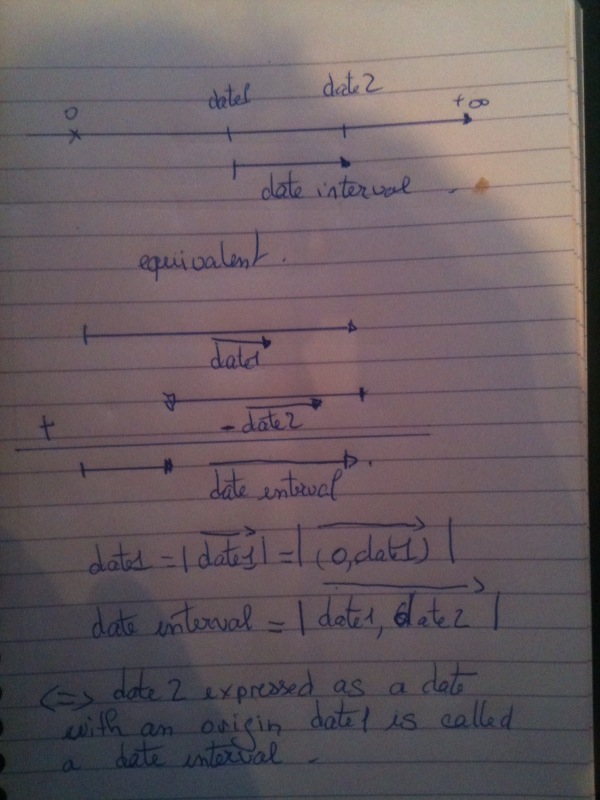 0 date1 date2 +∞
date interval
equivalent.
date1
+ - date2
date interval
date1 = |date1| = |(0, date1)|
date interval = |date1, date2|
<=> date 2 expressed as a date
with an origin date1 is called
a date interval.